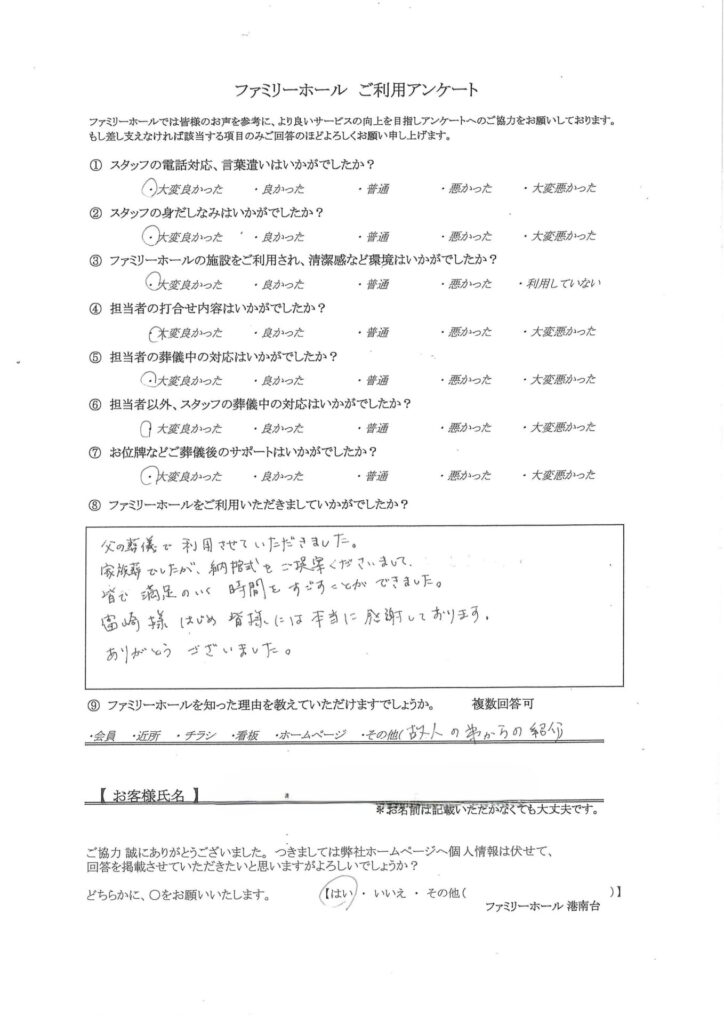 ファミリーホール ご利用アンケート
ファミリーホールでは皆様のお声を参考に、より良いサービスの向上を目指しアンケートへのご協力をお願いしております。
もし差し支えなければ該当する項目のみご回答のほどよろしくお願い申し上げます。
① スタッフの電話対応、言葉遣いはいかがでしたか？
・大変良かった ・良かった ・普通 ・悪かった ・大変悪かった
② スタッフの身だしなみはいかがでしたか？
・大変良かった ・良かった ・普通 ・悪かった ・大変悪かった
③ ファミリーホールの施設をご利用され、清潔感など環境はいかがでしたか？
・大変良かった ・良かった ・普通 ・悪かった ・利用していない
④ 担当者の打合せ内容はいかがでしたか？
・大変良かった ・良かった ・普通 ・悪かった ・大変悪かった
⑤ 担当者の葬儀中の対応はいかがでしたか？
・大変良かった ・良かった ・普通 ・悪かった ・大変悪かった
⑥ 担当者以外、スタッフの葬儀中の対応はいかがでしたか？
・大変良かった ・良かった ・普通 ・悪かった ・大変悪かった
⑦ お位牌などご葬儀後のサポートはいかがでしたか？
・大変良かった ・良かった ・普通 ・悪かった ・大変悪かった
⑧ ファミリーホールをご利用いただきましていかがでしたか？
父の葬儀で利用させていただきました。
家族葬でしたが、納棺式をご提案くださいまして、
皆で満足のいく時間をすごすことができました。
富崎様はじめ皆様には本当に感謝しております。
ありがとうございました。
⑨ ファミリーホールを知った理由を教えていただけますでしょうか。 複数回答可
・会員 ・近所 ・チラシ ・看板 ・ホームページ ・その他(故人の弟からの紹介)
【 お客様氏名 】
※お名前は記載いただかなくても大丈夫です。
ご協力 誠にありがとうございました。つきましては弊社ホームページへ個人情報は伏せて、
回答を掲載させていただきたいと思いますがよろしいでしょうか？
どちらかに、〇をお願いいたします。 【はい ・ いいえ ・ その他( )】
ファミリーホール 港南台